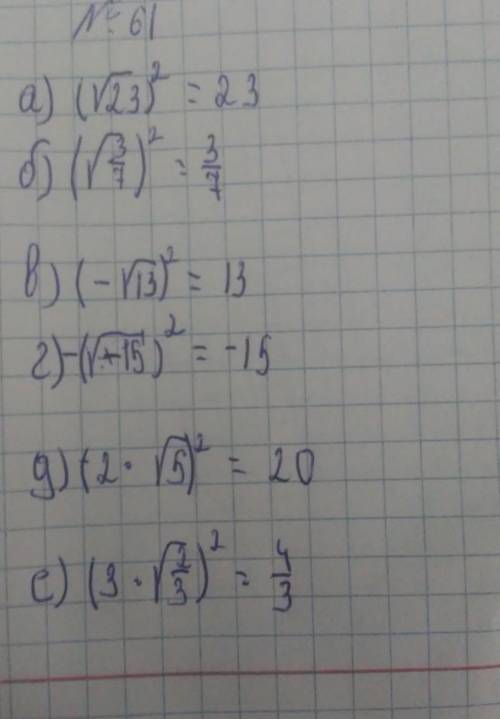 № 61
а) (√23)² = 23
б) (√3/7)² = 3/7
в) (-√13)² = 13
г) -(√+15)² = -15
д) (2 · √5)² = 20
е) (3 · √2/3)² = 4/3